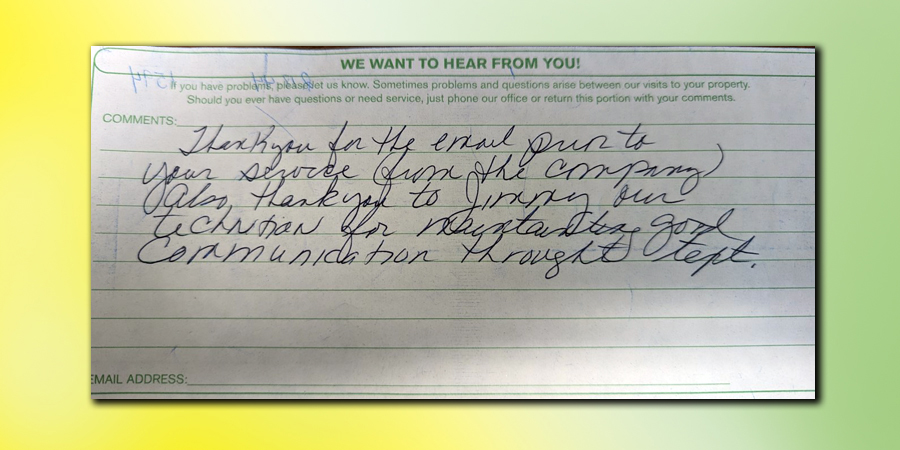 WE WANT TO HEAR FROM YOU!
If you have problems, please let us know. Sometimes problems and questions arise between our visits to your property.
Should you ever have questions or need service, just phone our office or return this portion with your comments.
COMMENTS:
Thank you for the email prior to
your service (from the company)
Also, thank you to Jimmy our
technitian for maintainting good
Communication throught
EMAIL ADDRESS: